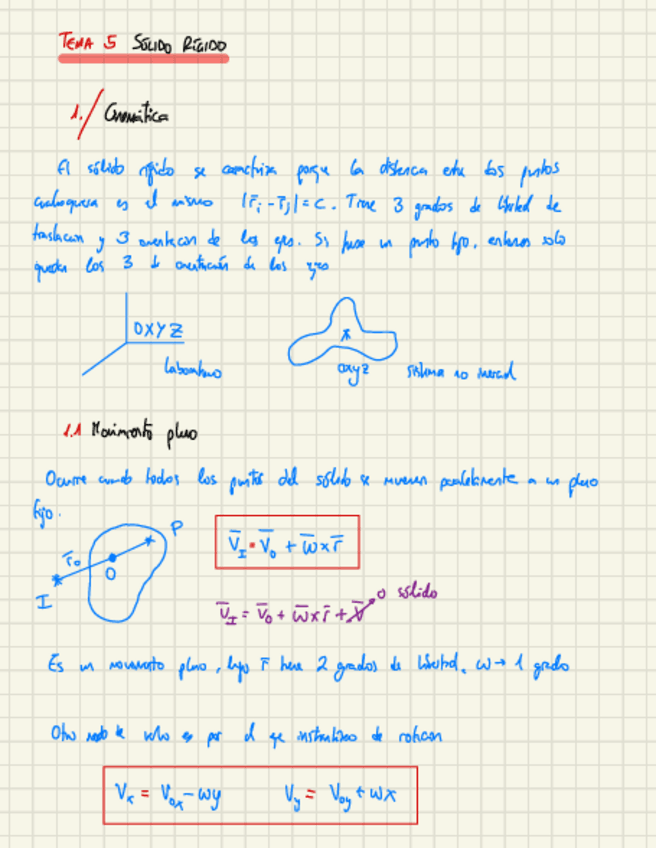 TEMA 5 SÓLIDO RÍGIDO
1./ Cinemática
El sólido rígido se caracteriza porque la distancia entre dos puntos
cualesquiera es el mismo |r̄i - r̄j| = c. Tiene 3 grados de libertad de
traslación y 3 orientación de los ejes. Si hay un punto fijo, entonces solo
quedan los 3 de orientación de los ejes
OXYZ
laboratorio
oxyz
sistema no inercial
1.1 Movimiento plano
Ocurre cuando todos los puntos del sólido se mueven paralelamente a un plano
fijo.
P
r̄o
O
I
V̄I = V̄o + ω̄ x r̄
V̄I = V̄o + ω̄ x r̄ + V̄ 0 sólido
Es un movimiento plano, luego r̄ tiene 2 grados de libertad, ω → 1 grado
Otro modo de verlo es por el eje instantáneo de rotación
Vx = Vox - ωy Vy = Voy + ωx